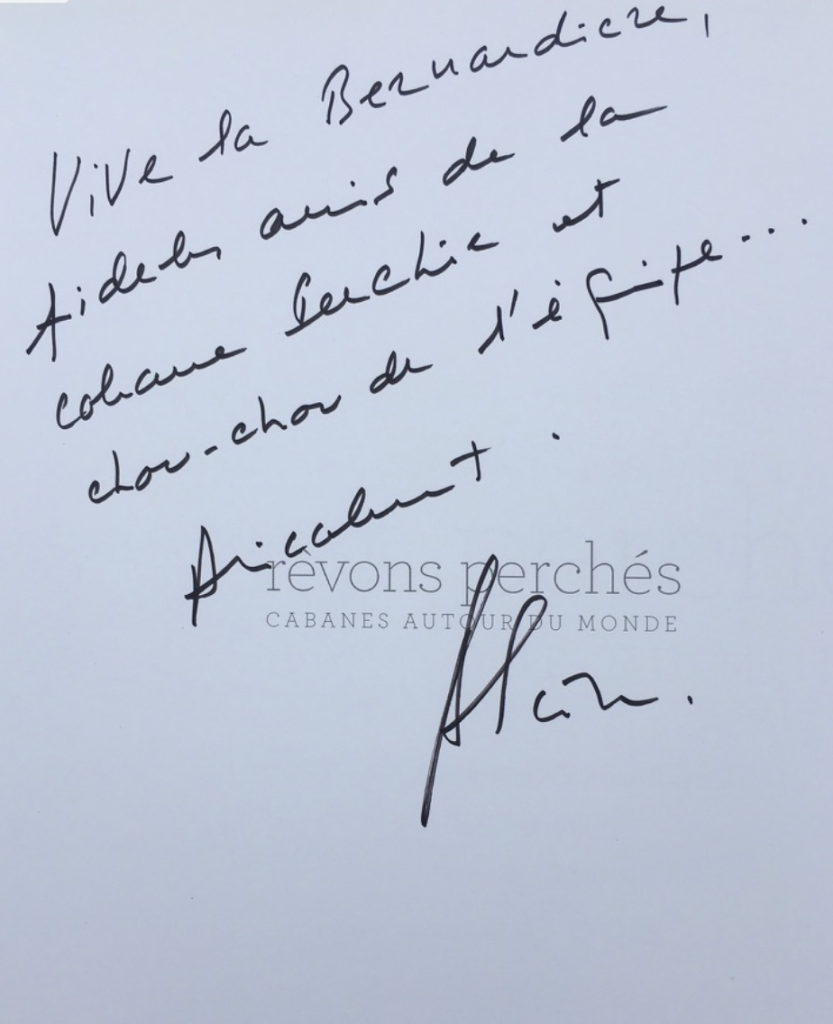 Vive la Bernardière,
fideles amis de la
cabane Perchée et
chou-chou de l'équipe...
Amicalement.
rêvons perchés
CABANES AUTOUR DU MONDE
Alain.